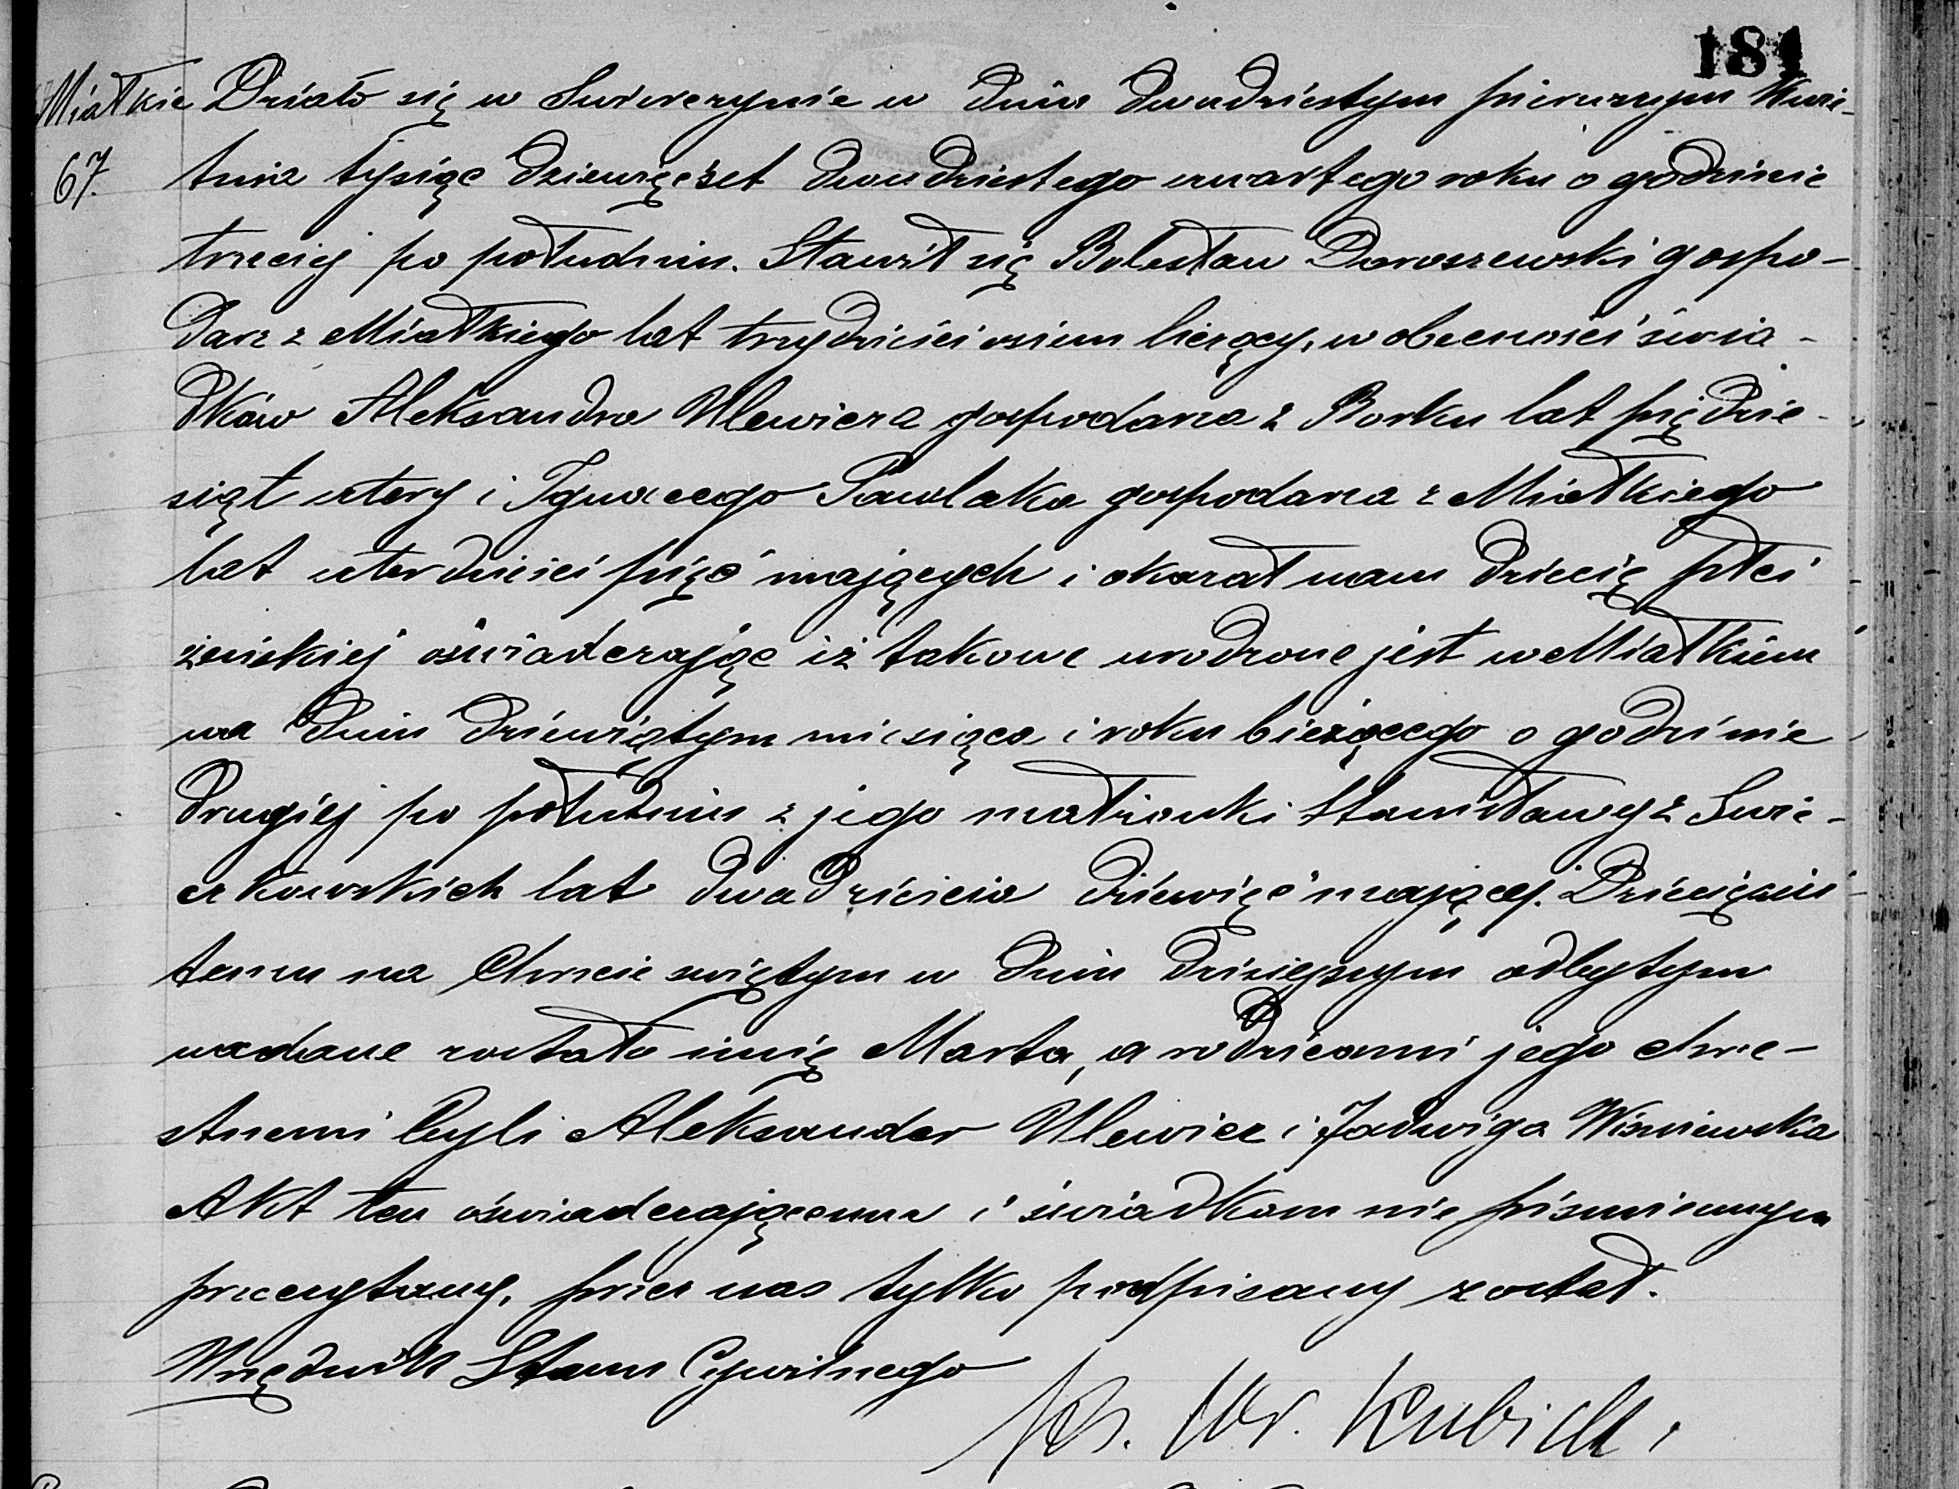 181
Miałkie Działo się w Swierczynie w dniu dwudziestym pierwszym Kwie-
67. tnia tysiąc dziewięćset dwudziestego czwartego roku o godzinie
trzeciej po południu. Stawił się Bolesław Doroszewski gospo-
darz z Miałkiego lat trzydzieści osiem liczący, w obecności świa-
dków Aleksandra Ulewicza gospodarza z Borku lat pięćdzie-
siąt cztery i Ignacego Pawlaka gospodarza z Miałkiego
lat czterdzieści pięć mających i okazał nam dziecię płci
żeńskiej oświadczając iż takowe urodzone jest w Miałkiem
na dniu dziewiątym miesiąca i roku bieżącego o godzinie
drugiej po południu z jego małżonki Stanisławy z Swie-
czkowskich lat dwadzieścia dziewięć mającej. Dziecięciu
temu na Chrcie swiętym w dniu dzisiejszym odbytym
nadane zostało imię Marta, a rodzicami jego chrze-
stnemi byli Aleksander Ulewicz i Jadwiga Wiśniewska
Akt ten oświadczającemu i świadkom nie piśmiennym
przeczytany, przez nas tylko podpisany został.
Urzędnik Stanu Cywilnego
Ks. Wr. Kubicki